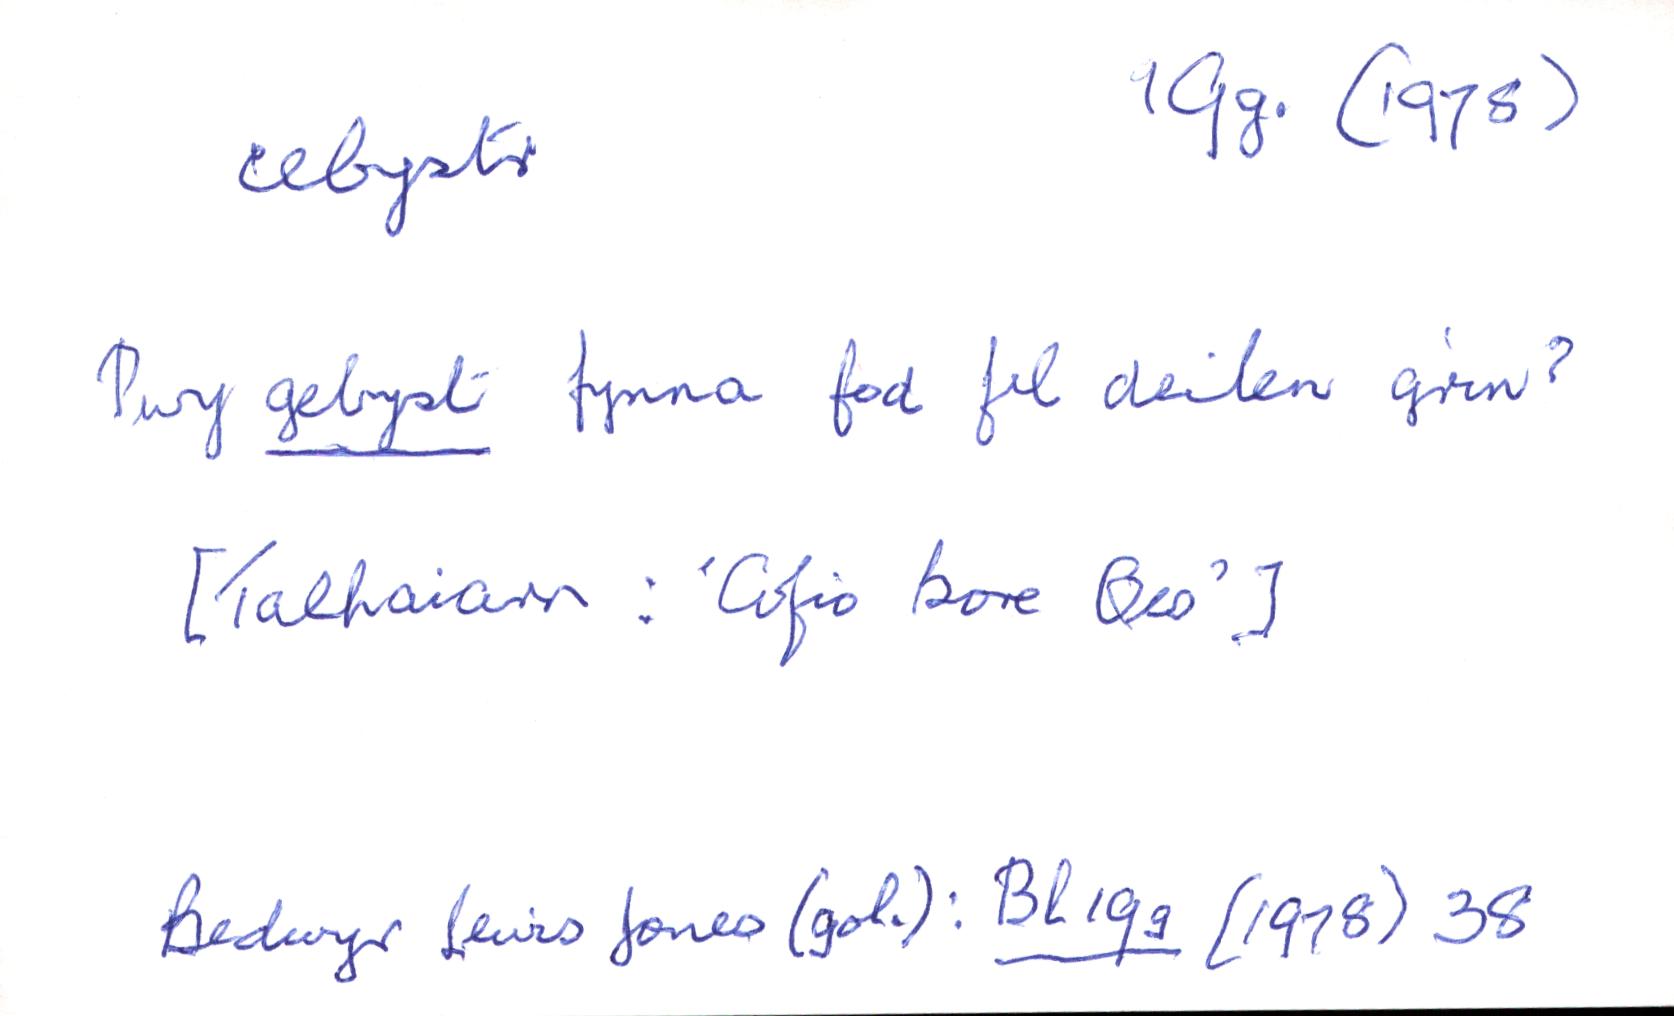 19g. (1978)
cebystr
Pwy gebyst fynna fod fel deilen grin?
[Talhaiarn : 'Cofio bore Oes']
Bedwyr Lewis Jones (gol.): Bl 19g (1978) 38